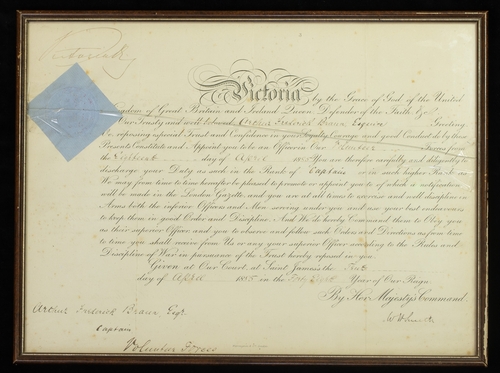 Victoria R
Victoria by the Grace of God of the United
Kingdom of Great Britain and Ireland Queen, Defender of the Faith &c
To Our Trusty and well beloved Arthur Frederick Esquire Greeting
We reposing especial Trust and Confidence in your Loyalty, Courage, and good Conduct do by these
Presents Constitute and Appoint you to be an Officer in Our Volunteer Forces from
the day of April 18 You are therefore carefully and diligently to
discharge your Duty as such in the Rank of Captain or in such higher Rank as
We may from time to time hereafter be pleased to promote or appoint you to of which a notification
will be made in the London Gazette and you are at all times to exercise and well discipline in
Arms both the inferior Officers and Men serving under you and use your best endeavours
to keep them in good Order and Discipline. And We do hereby Command them to Obey you
as their superior Officer and you to observe and follow such Orders and Directions as from time
to time you shall receive from Us or any your superior Officer according to the Rules and
Discipline of War in pursuance of the Trust hereby reposed in you.
Given at Our Court, at Saint James's the First
day of April 18 in the Year of Our Reign
By Her Majesty's Command.
Arthur Frederick Esqr.
Captain
Volunteer Forces